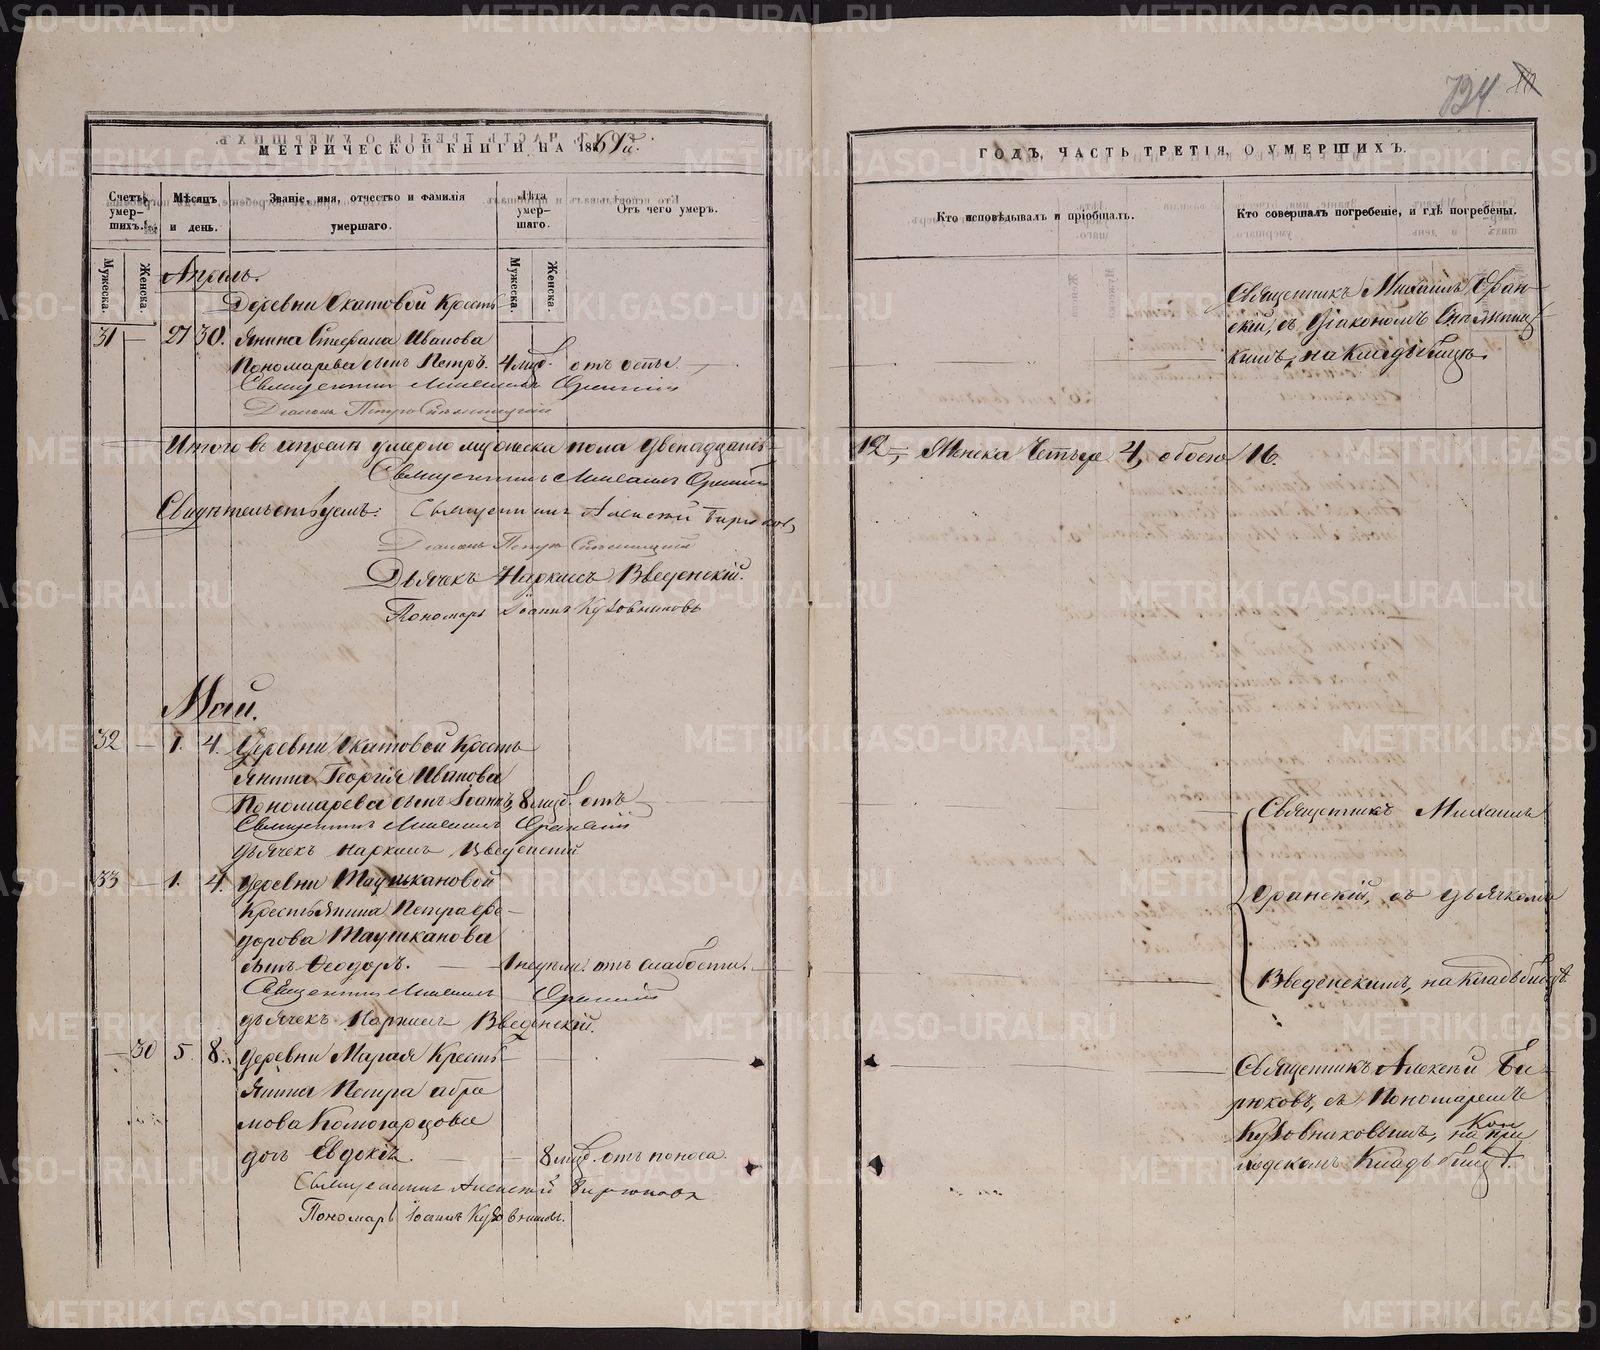 МЕТРИЧЕСКОЙ КНИГИ НА 1861й.
Счетъ умер-шихъ.
Мѣсяцъ и день.
Званіе, имя, отчество и фамилія умершаго.
Лѣта умер-шаго.
Отъ чего умеръ.
Мужеска.
Женска.
Мужеска.
Женска.
Апрель.
Деревни Скатовой Кресть
31 — 27 30. янина Стефана Иванова
Пономарева сынъ Петръ. 4 мѣс. отъ оспы.
Священникъ Михаилъ Оранскій
Діаконъ Петръ
Итого въ апрелѣ умерло мужеска пола двенадцать
Священникъ Михаилъ Оранскій
Свидѣтельствуемъ: Священникъ Алексѣй Бирюковъ,
Діаконъ Петръ
Дьячекъ Наркисъ Введенскій.
Пономарь Іоаннъ Кузовниковъ
Май.
32 — 1. 4. Деревни Скатовой Кресть
янина Георгія Иванова
Пономарева сынъ Іоаннъ, 8 мѣс. отъ
Священникъ Михаилъ Оранскій
Дьячекъ Наркисъ Введенскій
33 — 1. 4. Деревни Таушкановой
Крестьянина Петра Фе-
дорова Таушканова
сынъ Феодоръ. — 1 недѣли отъ слабости.
Священникъ Михаилъ Оранскій
дьячекъ Наркисъ Введенскій.
— 30 5. 8. Деревни Марая Кресть
янина Петра Абра
мова Комогорцова
дочь Евдокія. — 8 мѣс. отъ поноса.
Священникъ Алексѣй Бирюковъ
Пономарь Іоаннъ Кузовниковъ.
724
ГОДЪ, ЧАСТЬ ТРЕТІЯ, О УМЕРШИХЪ.
Кто исповѣдывалъ и пріобщалъ.
Кто совершалъ погребеніе, и гдѣ погребены.
Священникъ Михаилъ Оран-
скій, съ Діакономъ
кимъ, на кладбищѣ.
12, Женска Четыре 4, обоего 16.
Священникъ Михаилъ
Оранскій, съ дьячкомъ
Введенскимъ, на кладбищѣ.
Священникъ Алексѣй Би-
рюковъ, съ Пономаремъ
Кузовниковымъ, на при
ходскомъ кладбищѣ.